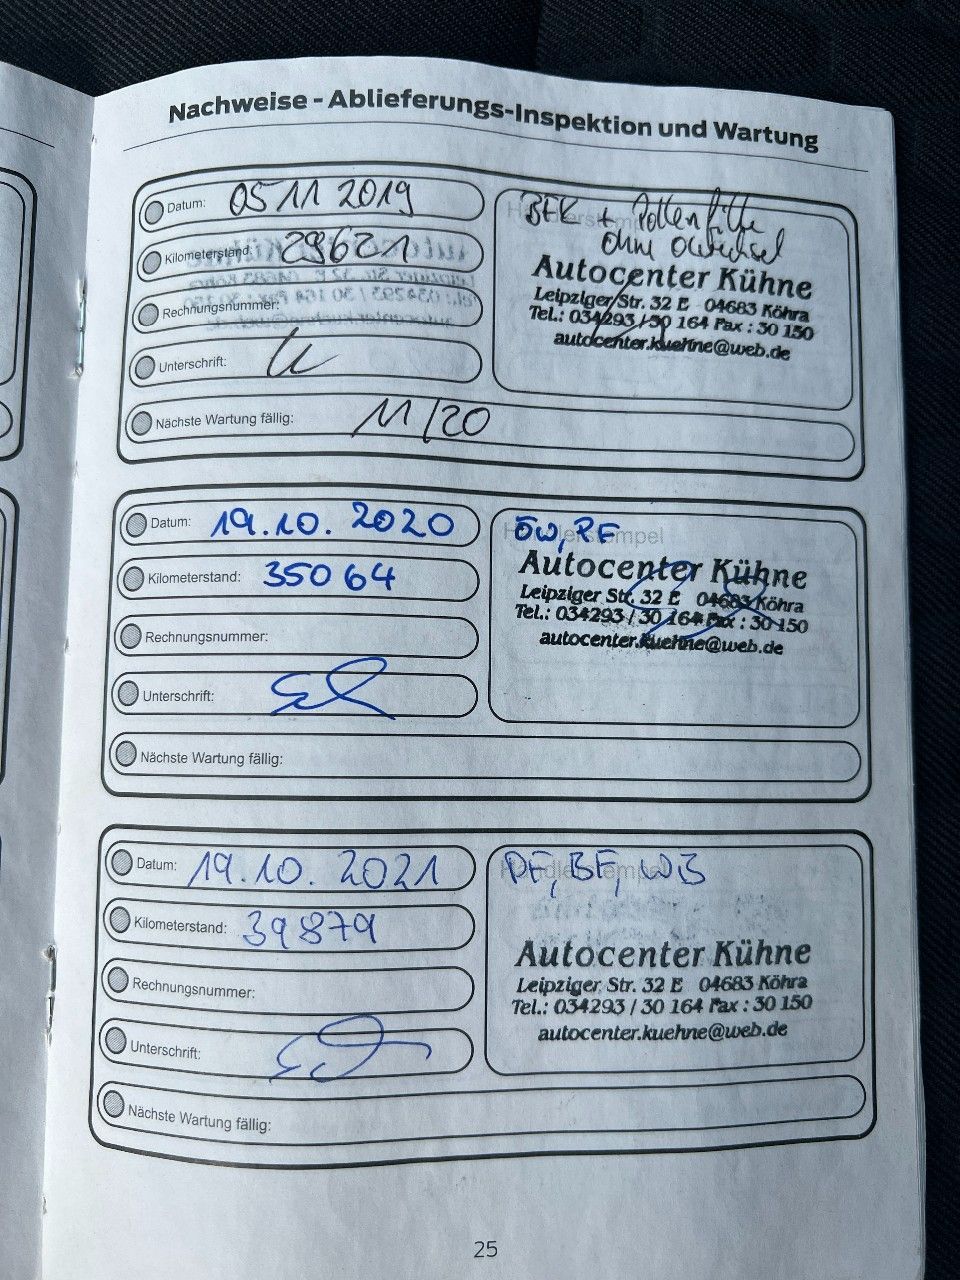 Nachweise - Ablieferungs-Inspektion und Wartung
Datum: 05 11 2019
Kilometerstand: 29621
Rechnungsnummer:
Unterschrift:
Nächste Wartung fällig: 11/20
Händlerstempel
+ Pollenfilter
ohne
Autocenter Kühne
Leipziger Str. 32 E 04683 Köhra
Tel.: 034293 / 30 164 Fax : 30 150
autocenter.kuehne@web.de
Datum: 19.10. 2020
Kilometerstand: 35064
Rechnungsnummer:
Unterschrift:
Nächste Wartung fällig:
Händlerstempel
ÖW, PF
Autocenter Kühne
Leipziger Str. 32 E 04683 Köhra
Tel.: 034293 / 30 164 Fax : 30 150
autocenter.kuehne@web.de
Datum: 19.10. 2021
Kilometerstand: 39879
Rechnungsnummer:
Unterschrift:
Nächste Wartung fällig:
Händlerstempel
PF, BF, WB
Autocenter Kühne
Leipziger Str. 32 E 04683 Köhra
Tel.: 034293 / 30 164 Fax : 30 150
autocenter.kuehne@web.de
25